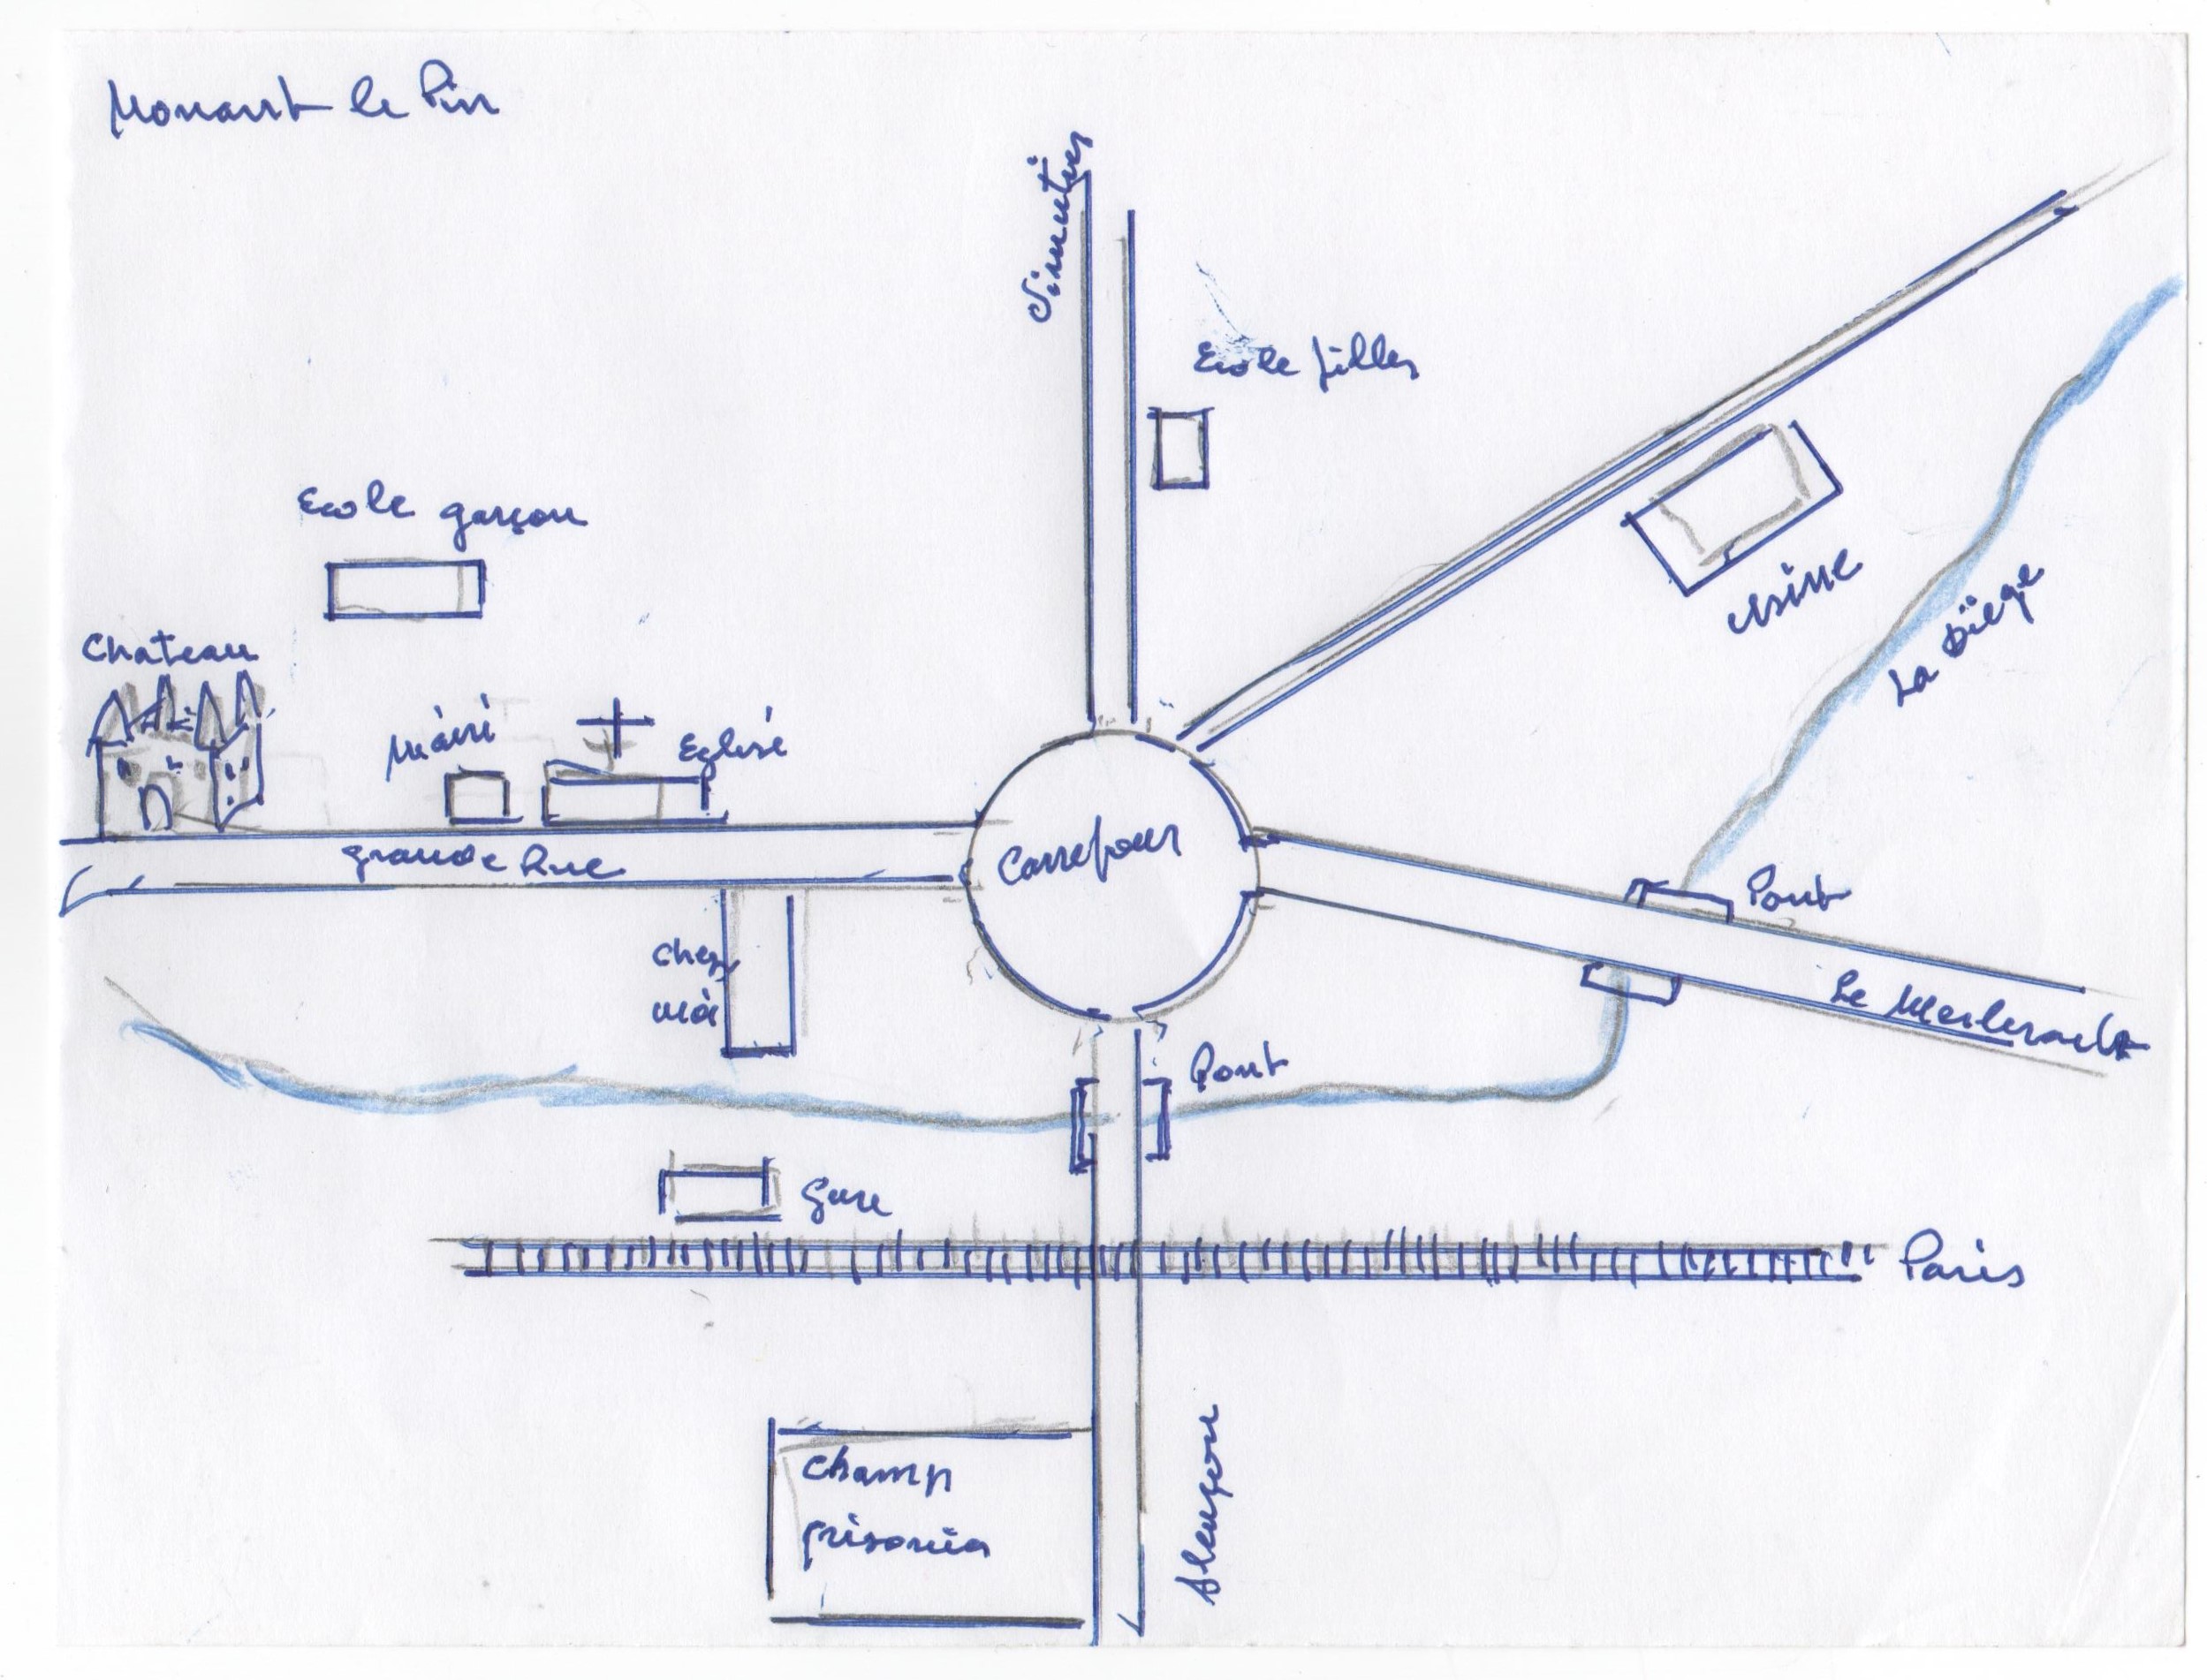 Nonant le Pin
Simetier
Ecole filles
Ecole garçon
Usine
La Diege
Chateau
Mairi
Eglise
grande Rue
Carrefour
Pont
Le Merlerault
chez
moi
Pont
Gare
Paris
champ
prisonier
Alençon